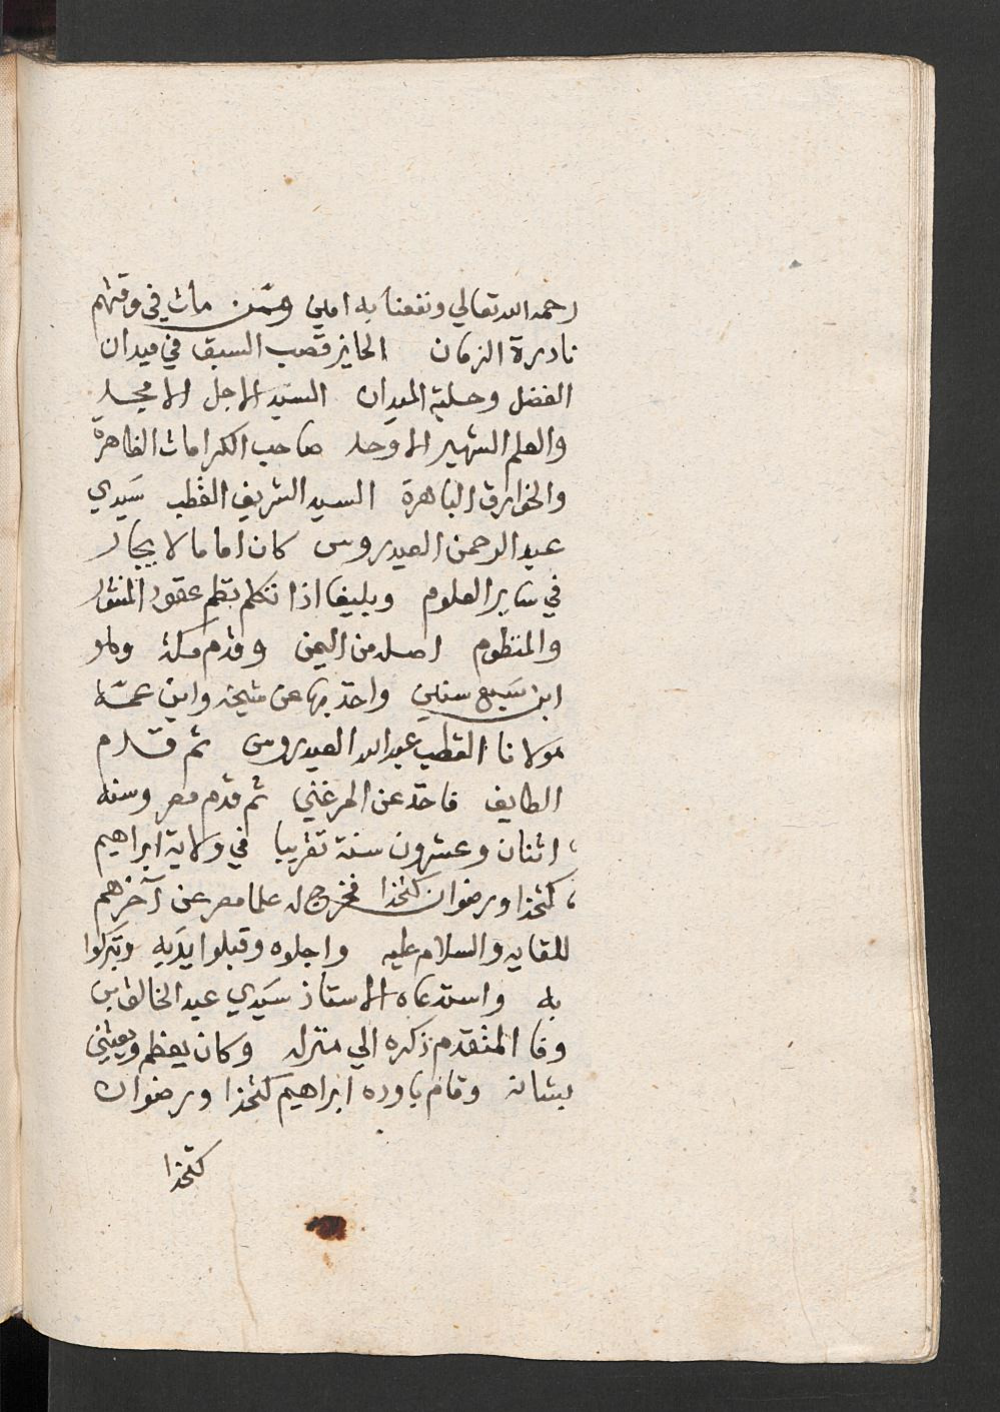 رحمه الله تعالي ونفعنا به امين وممن مات في وقتهم
نادرة الزمان الحايز قصب السبق في ميدان
الفضل وحلية الميدان السيد الاجل الامجد
والعلم الشهير الاوحد صاحب الكرامات الظاهرة
والخوارق الباهرة السيد الشريف القطب سيدي
عبد الرحمن العيدروس كان اماما لا يجار
في ساير العلوم وبليغا اذا تكلم نظم عقود المنثور
والمنظوم اصله من اليمن وقدم مكة وهو
ابن سبع سنين واخذ بها عن شيخه وابن عمه
مولانا القطب عبد الله العيدروس ثم قدم
الطايف فاخذ عن المرغني ثم قدم مصر وسنه
اثنان وعشرون سنة تقريبا في ولاية ابراهيم
كتخدا ورضوان كتخدا فخرج له علما مصر عن آخرهم
للقايه والسلام عليه واجلوه وقبلوا يديه وتبركوا
به واستدعاه الاستاذ سيدي عبد الخالق بن
وفا المتقدم ذكره الي منزله وكان يعظم ويعتني
بشانه وقام باوده ابراهيم كتخدا ورضوان
كتخدا